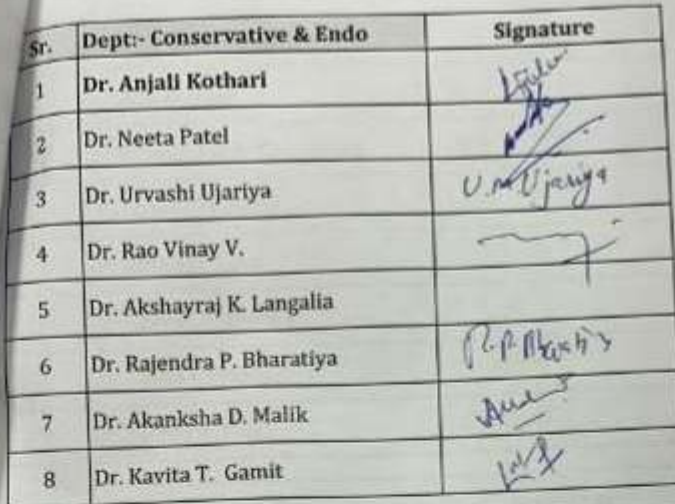 Sr. Dept:- Conservative & Endo Signature
1 Dr. Anjali Kothari
2 Dr. Neeta Patel
3 Dr. Urvashi Ujariya U.M Ujariya
4 Dr. Rao Vinay V.
5 Dr. Akshayraj K. Langalia
6 Dr. Rajendra P. Bharatiya R.P.
7 Dr. Akanksha D. Malik
8 Dr. Kavita T. Gamit